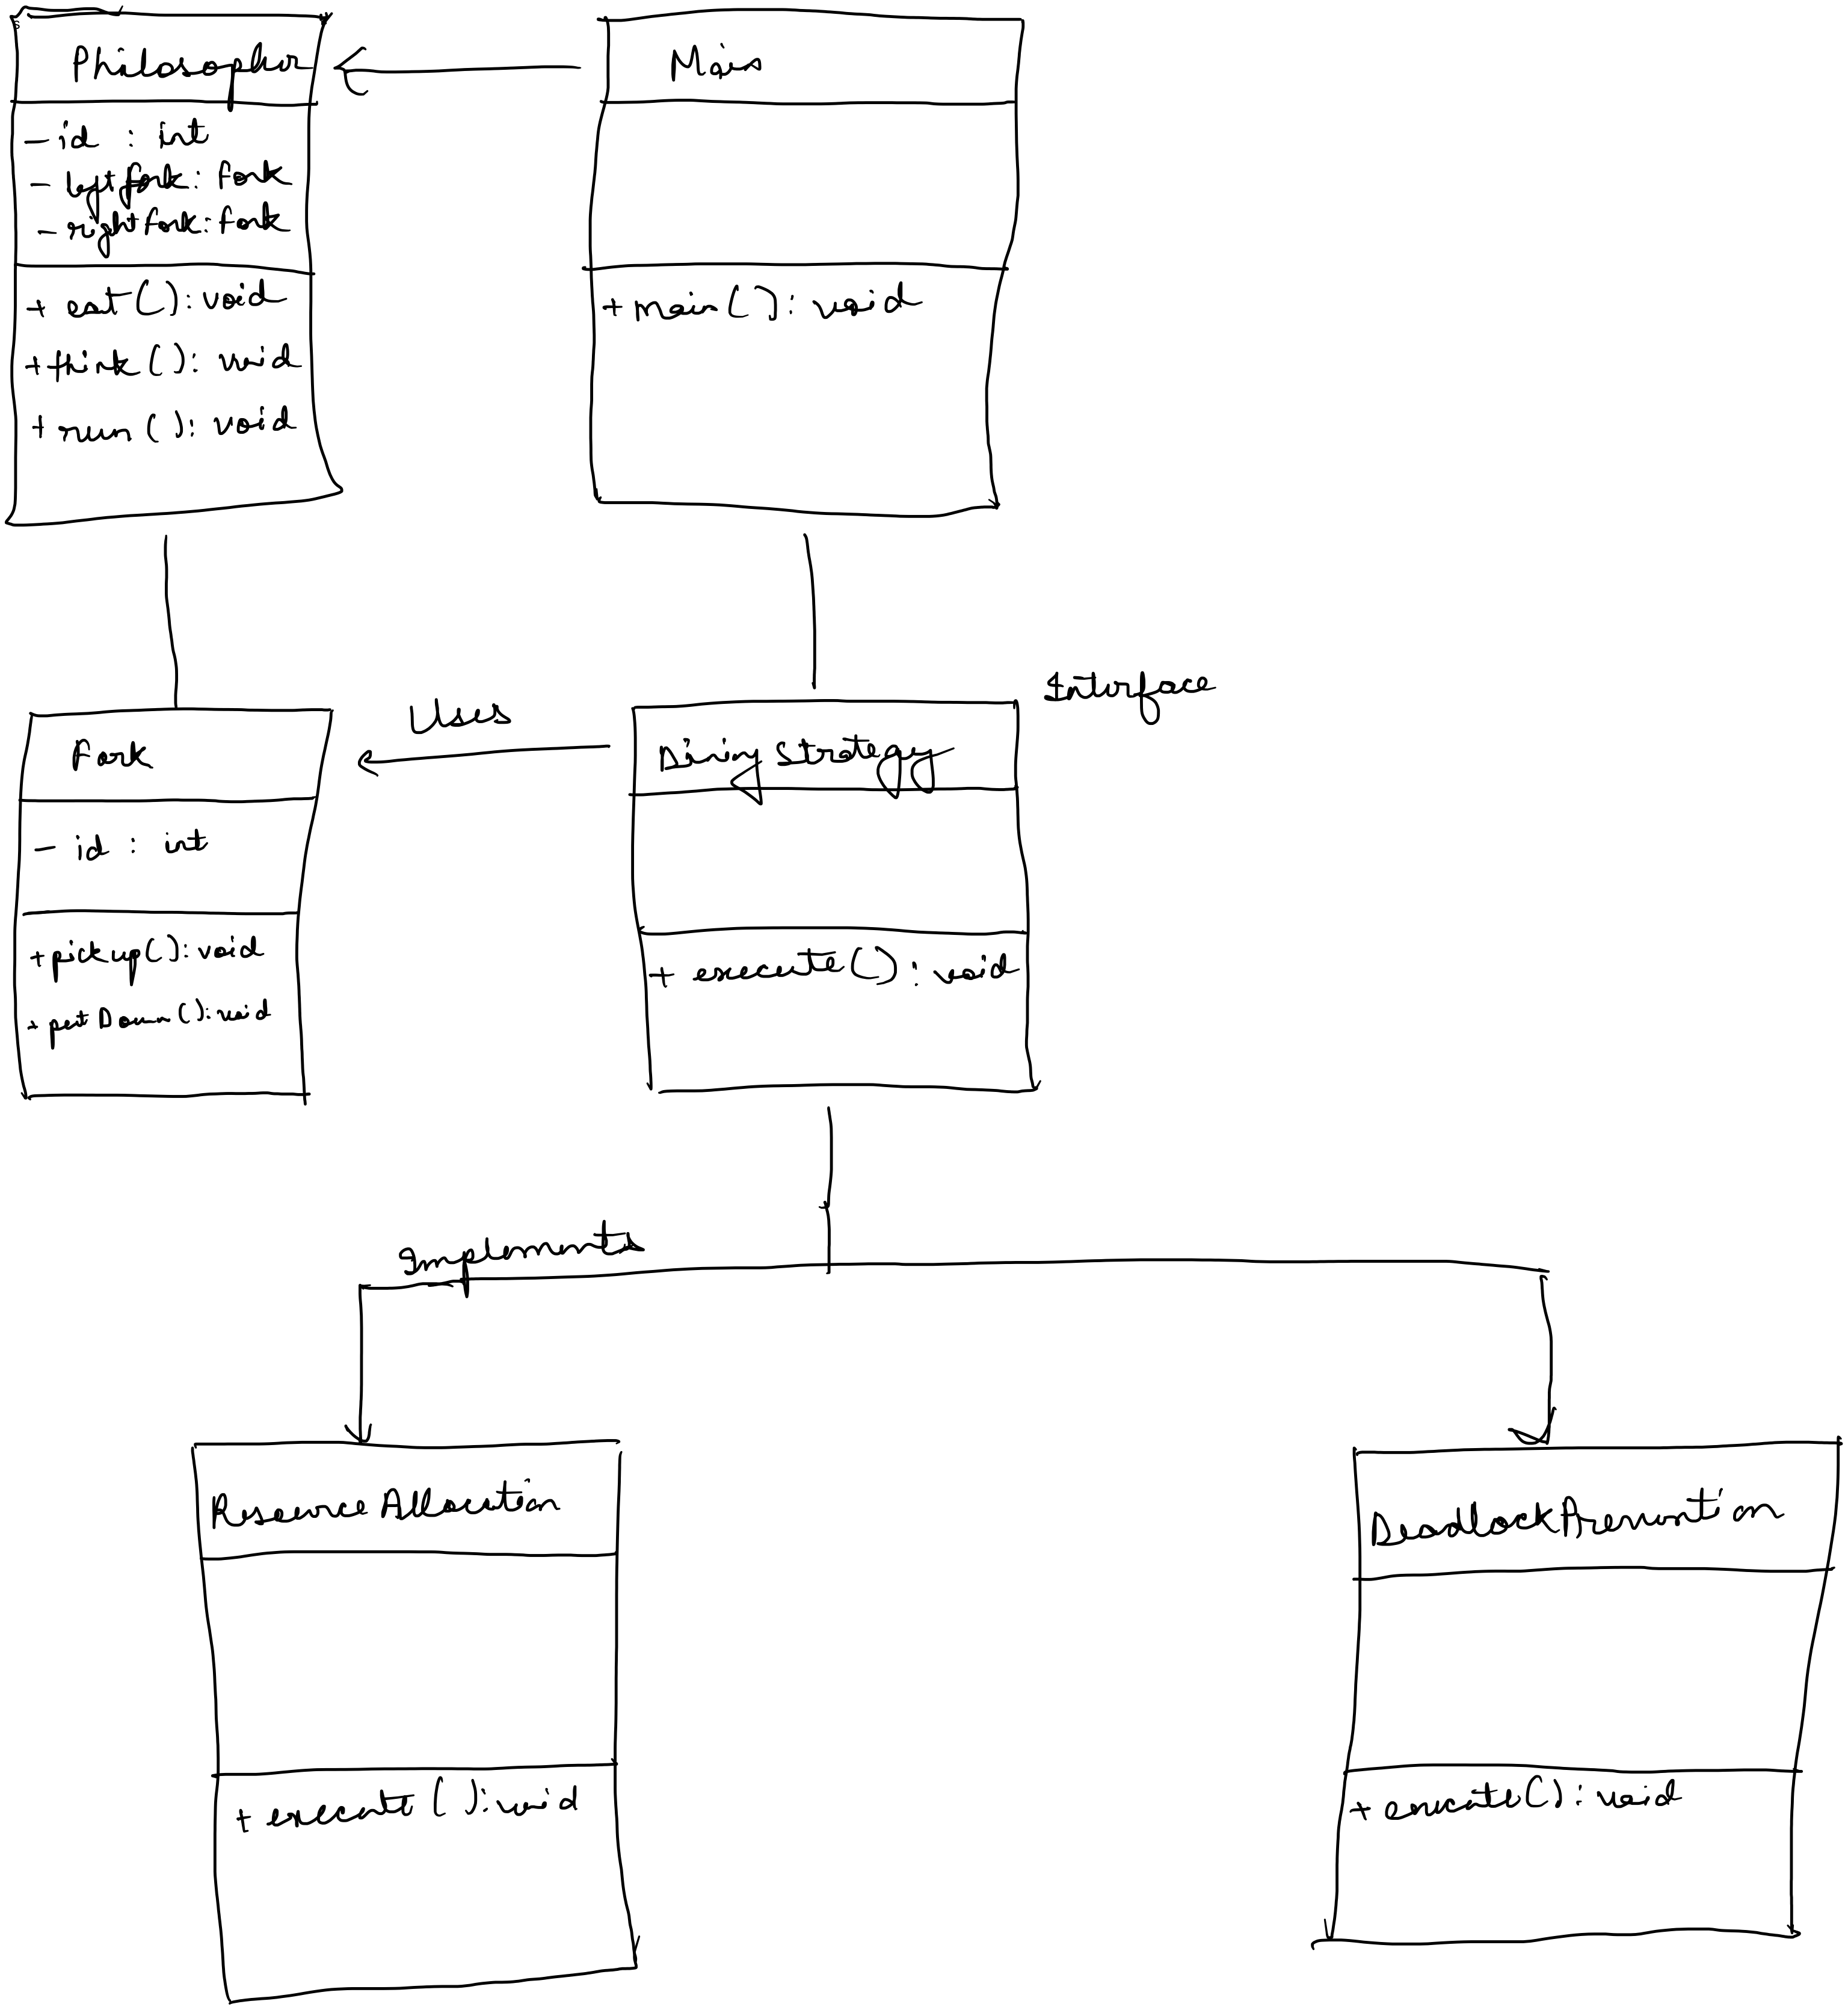 Philosopher
- id : int
- leftfork : Fork
- rightFork : Fork
+ eat ( ) : void
+ think ( ) : void
+ run ( ) : void
Main
+ main ( ) : void
Fork
- id : int
+ pickup( ) : void
+ putDown ( ) : void
Uses
Interface
Dining Strategy
+ execute ( ) : void
Implements
Resource Allocation
+ execute ( ) : void
DeadlockPrevention
+ execute ( ) : void